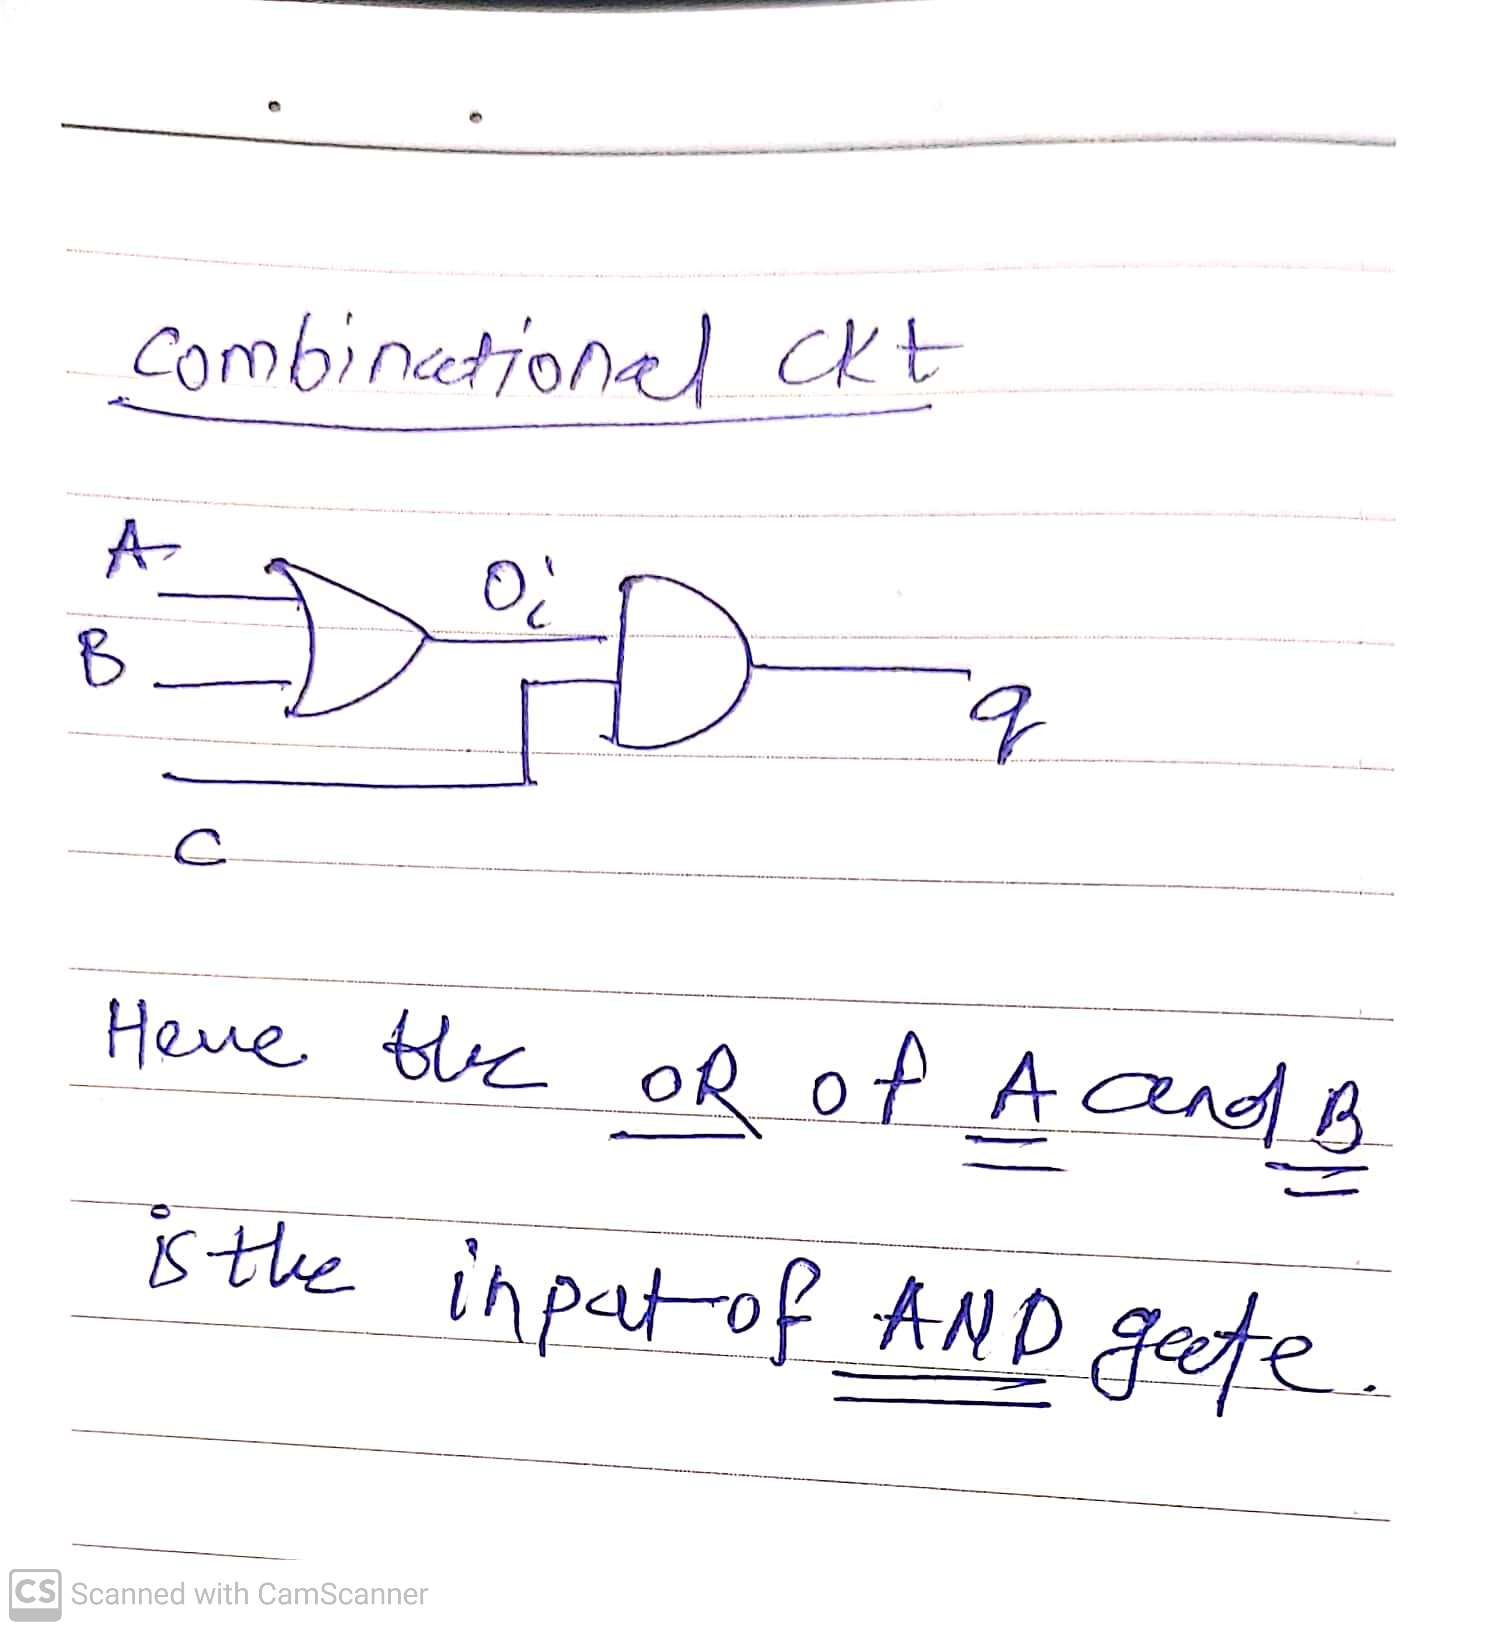 combinational ckt
A
Oi
B
q
C
Here the OR of A and B
is the input of AND gate.
CS Scanned with CamScanner